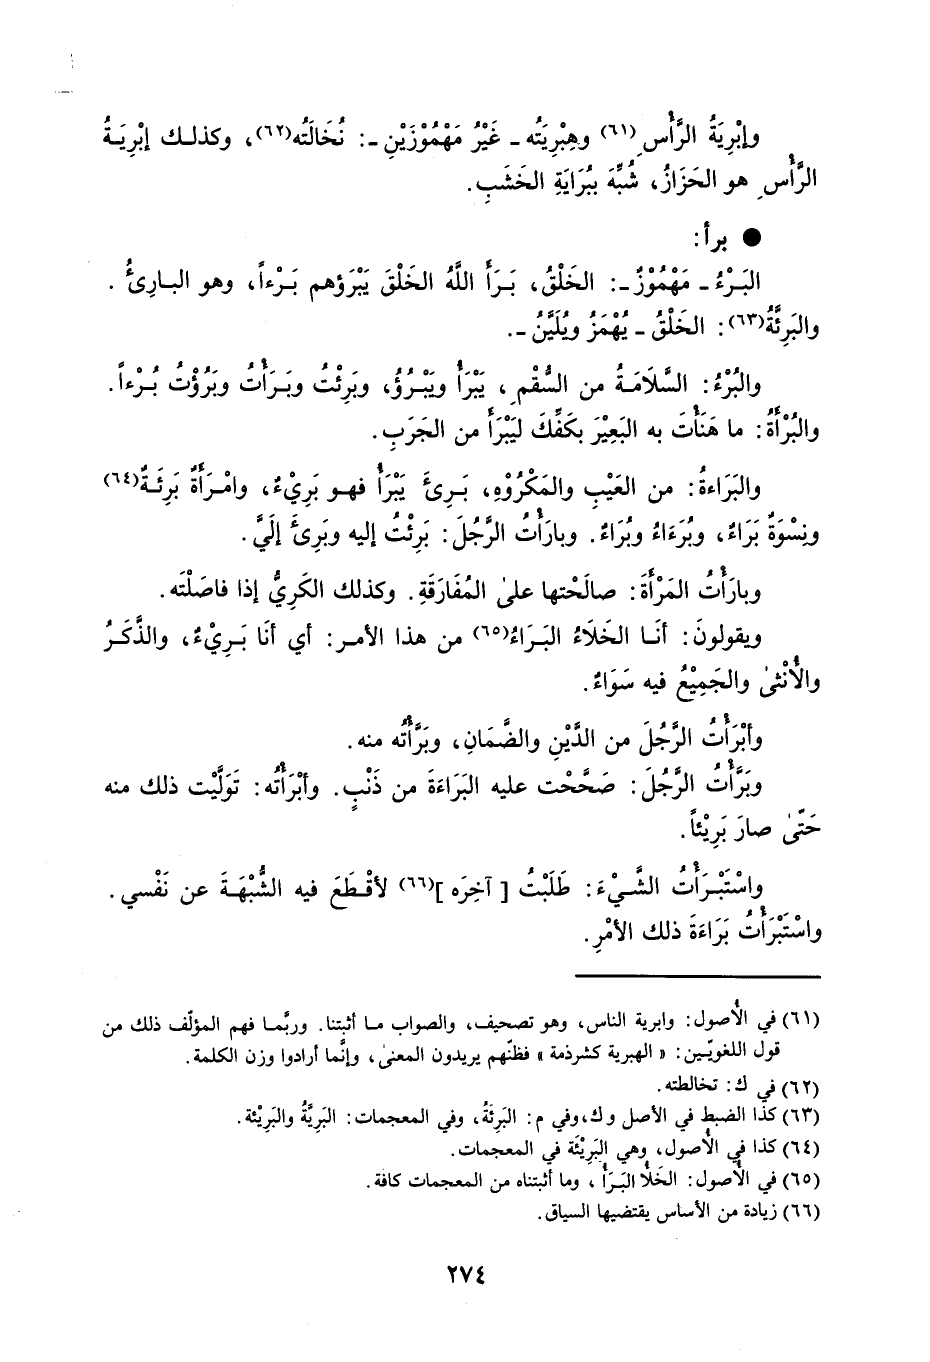 وإبْرِيَةُ الرَّأْسِ(٦١) وهِبْرِيَتُه ـ غَيْرُ مَهْمُوْزَيْنِ ـ: نُخَالَتُه(٦٢)، وكذلك إبْرِيَةُ
الرَّأْسِ هو الحَزَازُ، شُبِّهَ بِبُرَايَةِ الخَشَبِ.
● برأ:
البَرْءُ ـ مَهْمُوْزٌ ـ: الخَلْقُ، بَرَأَ اللَّهُ الخَلْقَ يَبْرَؤهم بَرْءاً، وهو البارِئُ.
والبَرِئَّةُ(٦٣): الخَلْقُ ـ يُهْمَزُ ويُلَيَّنُ ـ.
والبُرْءُ: السَّلَامَةُ من السُّقْمِ، يَبْرَأُ ويَبْرُؤُ، وبَرِئْتُ وبَرَأْتُ وبَرُؤْتُ بُرْءاً.
والبُرْأَةُ: ما هَنَأْتَ به البَعِيْرَ بكَفِّكَ لِيَبْرَأَ من الجَرَبِ.
والبَرَاءةُ: من العَيْبِ والمَكْرُوْهِ، بَرِئَ يَبْرَأُ فهو بَرِيْءٌ، وامْرَأَةٌ بَرِئَةٌ(٦٤)
ونِسْوَةٌ بَرَاءٌ، وبُرَءَاءُ وبُرَاءٌ. وبارَأْتُ الرَّجُلَ: بَرِئْتُ إليه وبَرِئَ إلَيَّ.
وبارَأْتُ المَرْأَةَ: صالَحْتها على المُفَارَقَةِ. وكذلك الكَرِيُّ إذا فاصَلْتَه.
ويقولونَ: أنَا الخَلَاءُ البَرَاءُ(٦٥) من هذا الأمر: أي أنَا بَرِيْءٌ، والذَّكَرُ
والأُنْثى والجَمِيْعُ فيه سَوَاءٌ.
وأبْرَأْتُ الرَّجُلَ من الدَّيْنِ والضَّمَانِ، وبَرَّأْتُه منه.
وبَرَّأْتُ الرَّجُلَ: صَحَّحْت عليه البَرَاءَةَ من ذَنْبٍ. وأبْرَأْتُه: تَوَلَّيْت ذلك منه
حَتّى صارَ بَرِيْئاً.
واسْتَبْرَأْتُ الشَّيْءَ: طَلَبْتُ [آخِرَه](٦٦) لأقْطَعَ فيه الشُّبْهَةَ عن نَفْسي.
واسْتَبْرَأْتُ بَرَاءَةَ ذلك الأمْرِ.
(٦١) في الأصول: وابرية الناس، وهو تصحيف، والصواب ما أثبتنا. وربَّما فهم المؤلّف ذلك من
قول اللغويّين: «الهبرية كشرذمة» فظنّهم يريدون المعنى، وإنَّما أرادوا وزن الكلمة.
(٦٢) في ك: تخالطته.
(٦٣) كذا الضبط في الأصل وك، وفي م: البَرِئَةُ، وفي المعجمات: البَرِيَّةُ والبَرِيْئة.
(٦٤) كذا في الأصول، وهي البَرِيْئَة في المعجمات.
(٦٥) في الأصول: الخَلأُ البَرَأُ، وما أثبتناه من المعجمات كافة.
(٦٦) زيادة من الأساس يقتضيها السياق.
٢٧٤